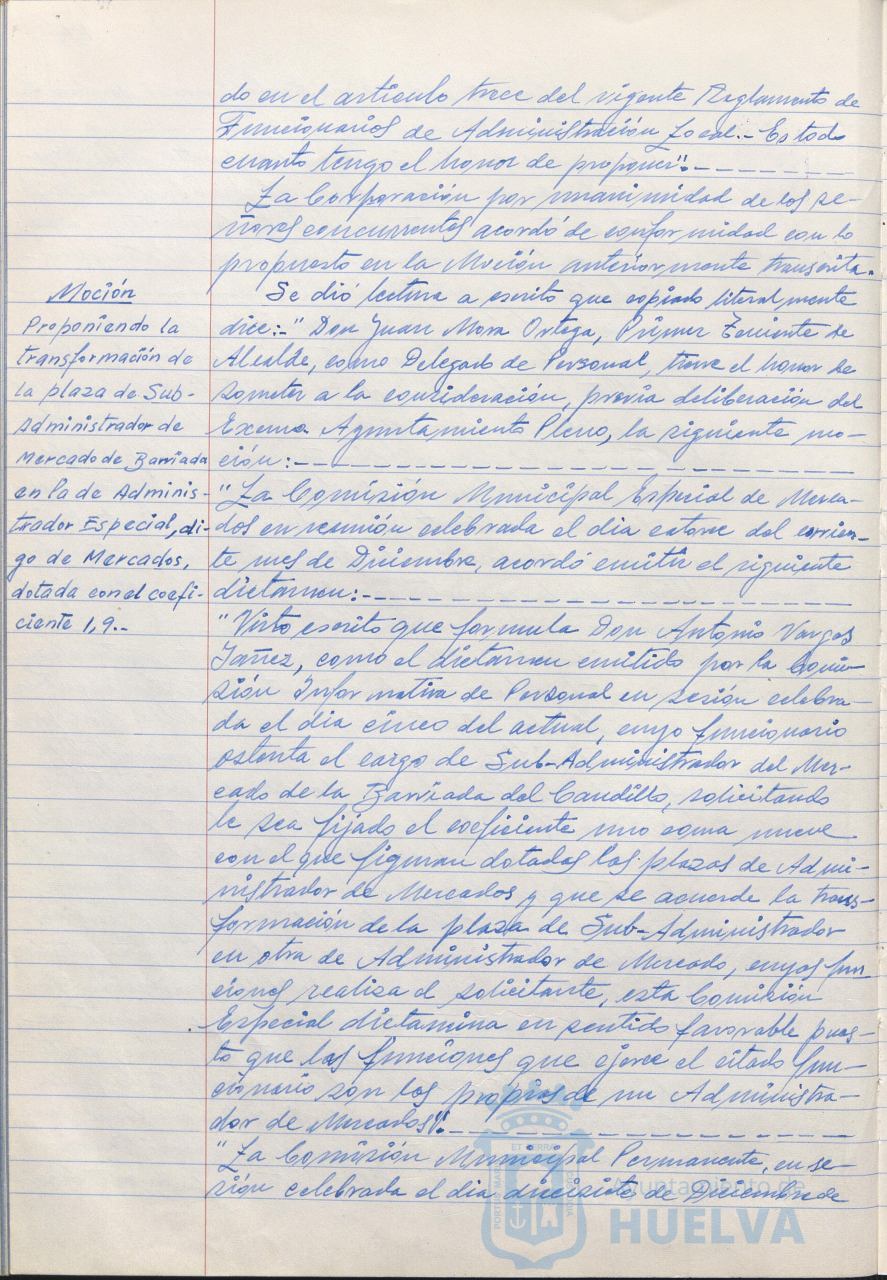 do en el articulo trece del vigente Reglamento de
Funcionarios de Administración Local.- Es todo
cuanto tengo el honor de proponer".-
La Corporación por unanimidad de los se-
ñores concurrentes acordó de conformidad con lo
propuesto en la Moción anteriormente transcrita.
Moción
Proponiendo la
transformación de
la plaza de Sub-
Administrador de
Mercado de Barriada
en la de Adminis-
trador Especial, di-
go de Mercados,
dotada con el coefi-
ciente 1,9.-
Se dió lectura a escrito que copiado literalmente
dice:-" Don Juan Mora Ortega, Primer Teniente de
Alcalde, como Delegado de Personal, tiene el honor de
someter a la consideración, previa deliberación del
Excmo. Ayuntamiento Pleno, la siguiente mo-
ción:-
"La Comisión Municipal Especial de Merca-
dos en reunión celebrada el dia catorce del corrien-
te mes de Diciembre, acordó emitir el siguiente
dictamen:-
"Visto escrito que formula Don Antonio Vargas
Yañez, como el dictamen emitido por la Comi-
sión Informativa de Personal en sesión celebra-
da el dia cinco del actual, cuyo funcionario
ostenta el cargo de Sub-Administrador del Mer-
cado de la Barriada del Caudillo, solicitando
le sea fijado el coeficiente uno coma nueve
con el que figuran dotadas las plazas de Admi-
nistrador de Mercados y que se acuerde la trans-
formación de la plaza de Sub-Administrador
en otra de Administrador de Mercado, cuyas fun-
ciones realiza el solicitante, esta Comisión
Especial dictamina en sentido favorable pues-
to que las funciones que ejerce el citado fun-
cionario son las propias de un Administra-
dor de Mercados".-
"La Comisión Municipal Permanente, en se-
sión celebrada el dia diecisiete de Diciembre de
Ayuntamiento de
HUELVA